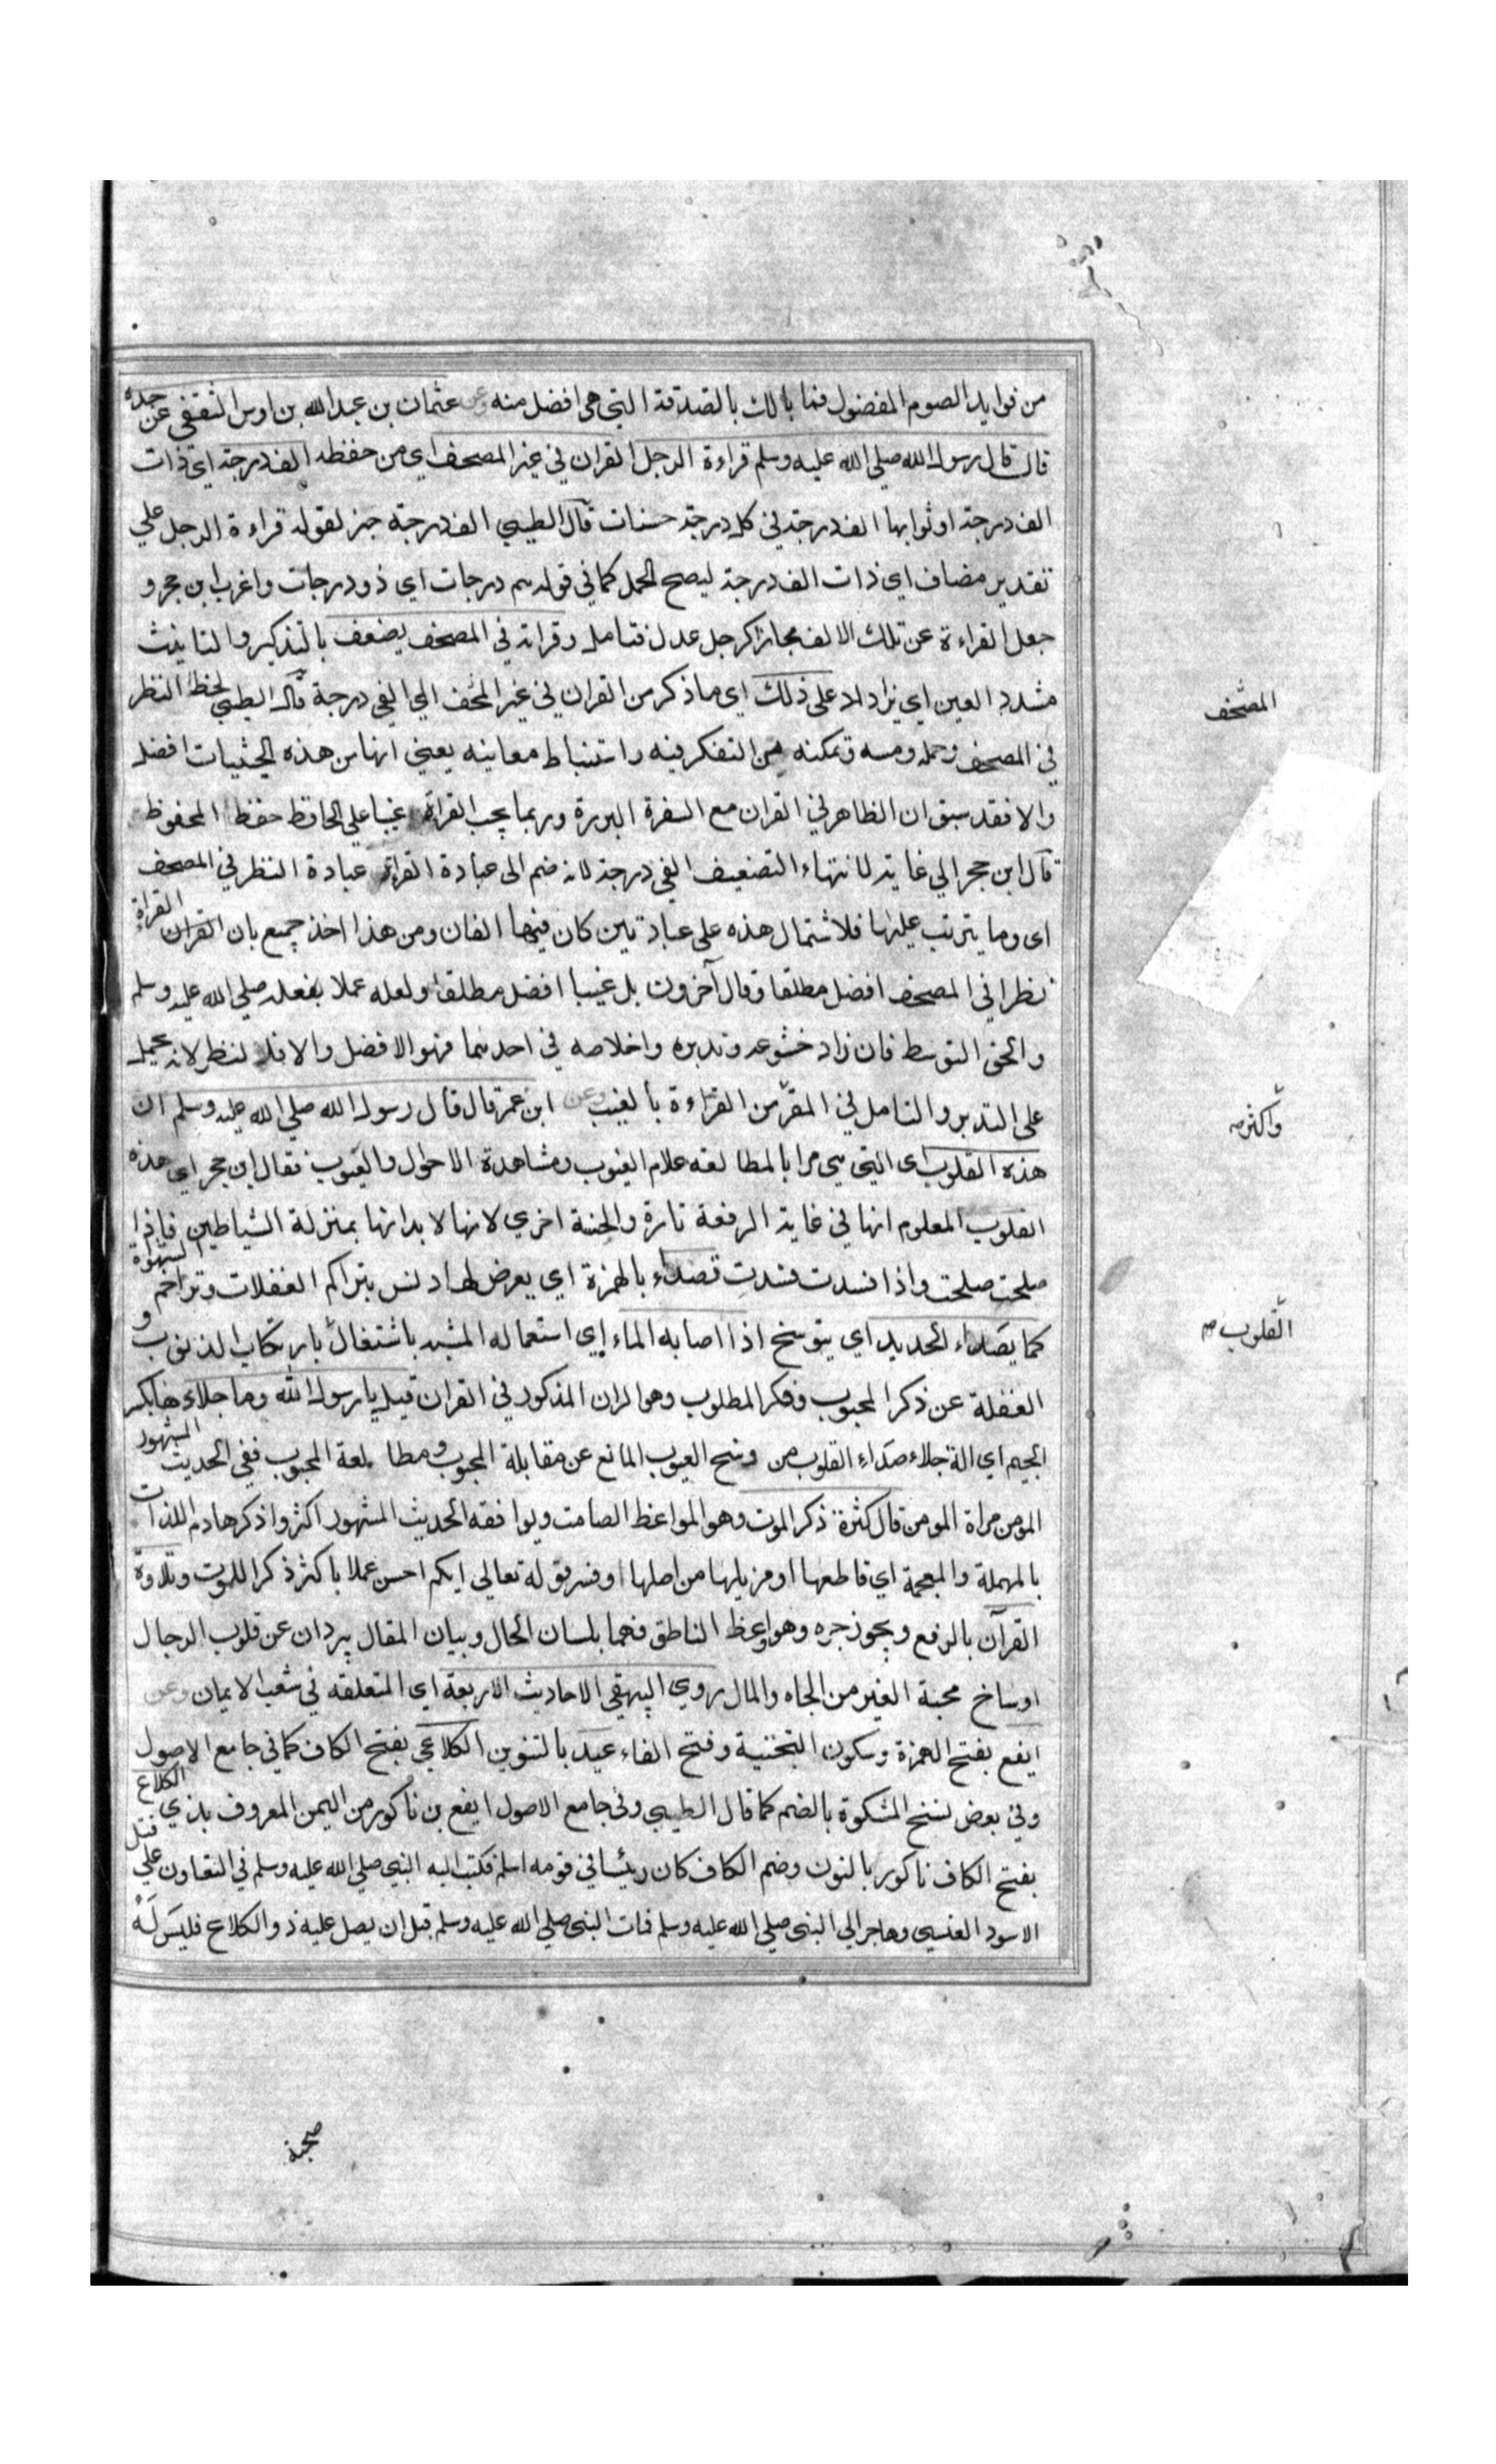 من فوايد الصوم المفضول فما بالك بالصدقة التي هي افضل منه وعن عثمان بن عبد الله بن اوس الثقفي عن جده
قال قال رسول الله صلي الله عليه وسلم قراءة الرجل القران في غير المصحف اي من حفظه الف درجة اي ذات
الف درجة او ثوابها الف درجة في كل درجة حسنات قال الطيبي الف درجة خبر لقوله قراءة الرجل علي
تقدير مضاف اي ذات الف درجة ليصح الحمل كما في قوله هم درجات اي ذو درجات واغرب ابن حجر و
جعل القراءة عن تلك الالف مجازا كرجل عدل فتامل وقراته في المصحف يضعف بالتذكير والتانيث
مشدد العين اي يزاد له علي ذلك اي ما ذكر من القران في غير المصحف الي الفي درجة قال الطيبي لحظ النظر
في المصحف وحمله ومسه وتمكنه من التفكر فيه واستنباط معانيه يعني انها من هذه الحيثيات افضل
والا فقد سبق ان الظاهر في القران مع السفرة البررة وربما يجب القراة غيبا علي الحافظ حفظ المحفوظ
قال ابن حجر الي غاية لانتهاء التضعيف الفي درجة لانه ضم الى عبادة القراة عبادة النظر في المصحف
اى وما يترتب عليها فلاشتمال هذه على عبادتين كان فيها الفان ومن هذا اخذ جمع بان القران القراة
نظرا في المصحف افضل مطلقا وقال آخرون بل غيبا افضل مطلقا ولعله عملا بفعله صلي الله عليه وسلم
والحق التوسط فان زاد خشوعه وتدبره واخلاصه في احدهما فهو الافضل والا فالنظر لانه يحمل
على التدبر والتامل في المقر من القراءة بالغيب وعن ابن عمر قال قال رسول الله صلي الله عليه وسلم ان
هذه القلوب اى التي هي مرايا لمطالعه علام الغيوب ومشاهدة الاحوال والعيوب فقال ابن حجر اي هذه
القلوب المعلوم انها في غاية الرفعة تارة والخسة اخري لانها لا بدانها بمنزلة الشياطين فاذا
صلحت صلحت واذا فسدت فسدت تصداء بالهمزة اي يعرض لها دنس بتراكم الغفلات وتزاحم الشهوة
كما يصداء الحديد اي يتوسخ اذا اصابه الماء اي استعماله المشبه باشتغال بارتكاب الذنوب و
الغفلة عن ذكر المحبوب وفكر المطلوب وهو الران المذكور في القران قيل يا رسول الله وما جلاءها بكسر
الجيم اي الة جلاء صداء القلوب من وسخ العيوب المانع عن مقابلة المحبوب ومطالعة المحبوب ففي الحديث المشهور
المومن مراة المومن قال كثرة ذكر الموت وهو المواعظ الصامت ويوافقه الحديث المشهور اكثروا ذكر هادم اللذات
بالمهملة والمعجمة اي قاطعها او مزيلها من اصلها او فسر قوله تعالى ايكم احسن عملا باكثر ذكرا للموت وتلاوة
القرآن بالرفع ويجوز جره وهو واعظ الناطق فهما بلسان الحال وبيان المقال يبردان عن قلوب الرجال
اوساخ محبة الغير من الجاه والمال روي البيهقي الاحاديث الاربعة اي المتعلقه في شعب الايمان وعن
ايفع بفتح الهمزة وسكون التحتية وفتح الفاء عبد بالتنوين الكلاعي بفتح الكاف كما في جامع الاصول
وفي بعض نسخ المشكوة بالضم كما قال الطيبي وفي جامع الاصول ايفع بن ناكور من اليمن المعروف بذي الكلاع
بفتح الكاف ناكور بالنون وضم الكاف كان رئيسا في قومه اسلم فكتب اليه النبي صلي الله عليه وسلم في التعاون علي قتل
الاسود العنسي وهاجر الي النبي صلي الله عليه وسلم فمات النبي صلي الله عليه وسلم قبل ان يصل عليه ذو الكلاع فليس له
المصحف
واكثر صه
القلوب صه
صحبة